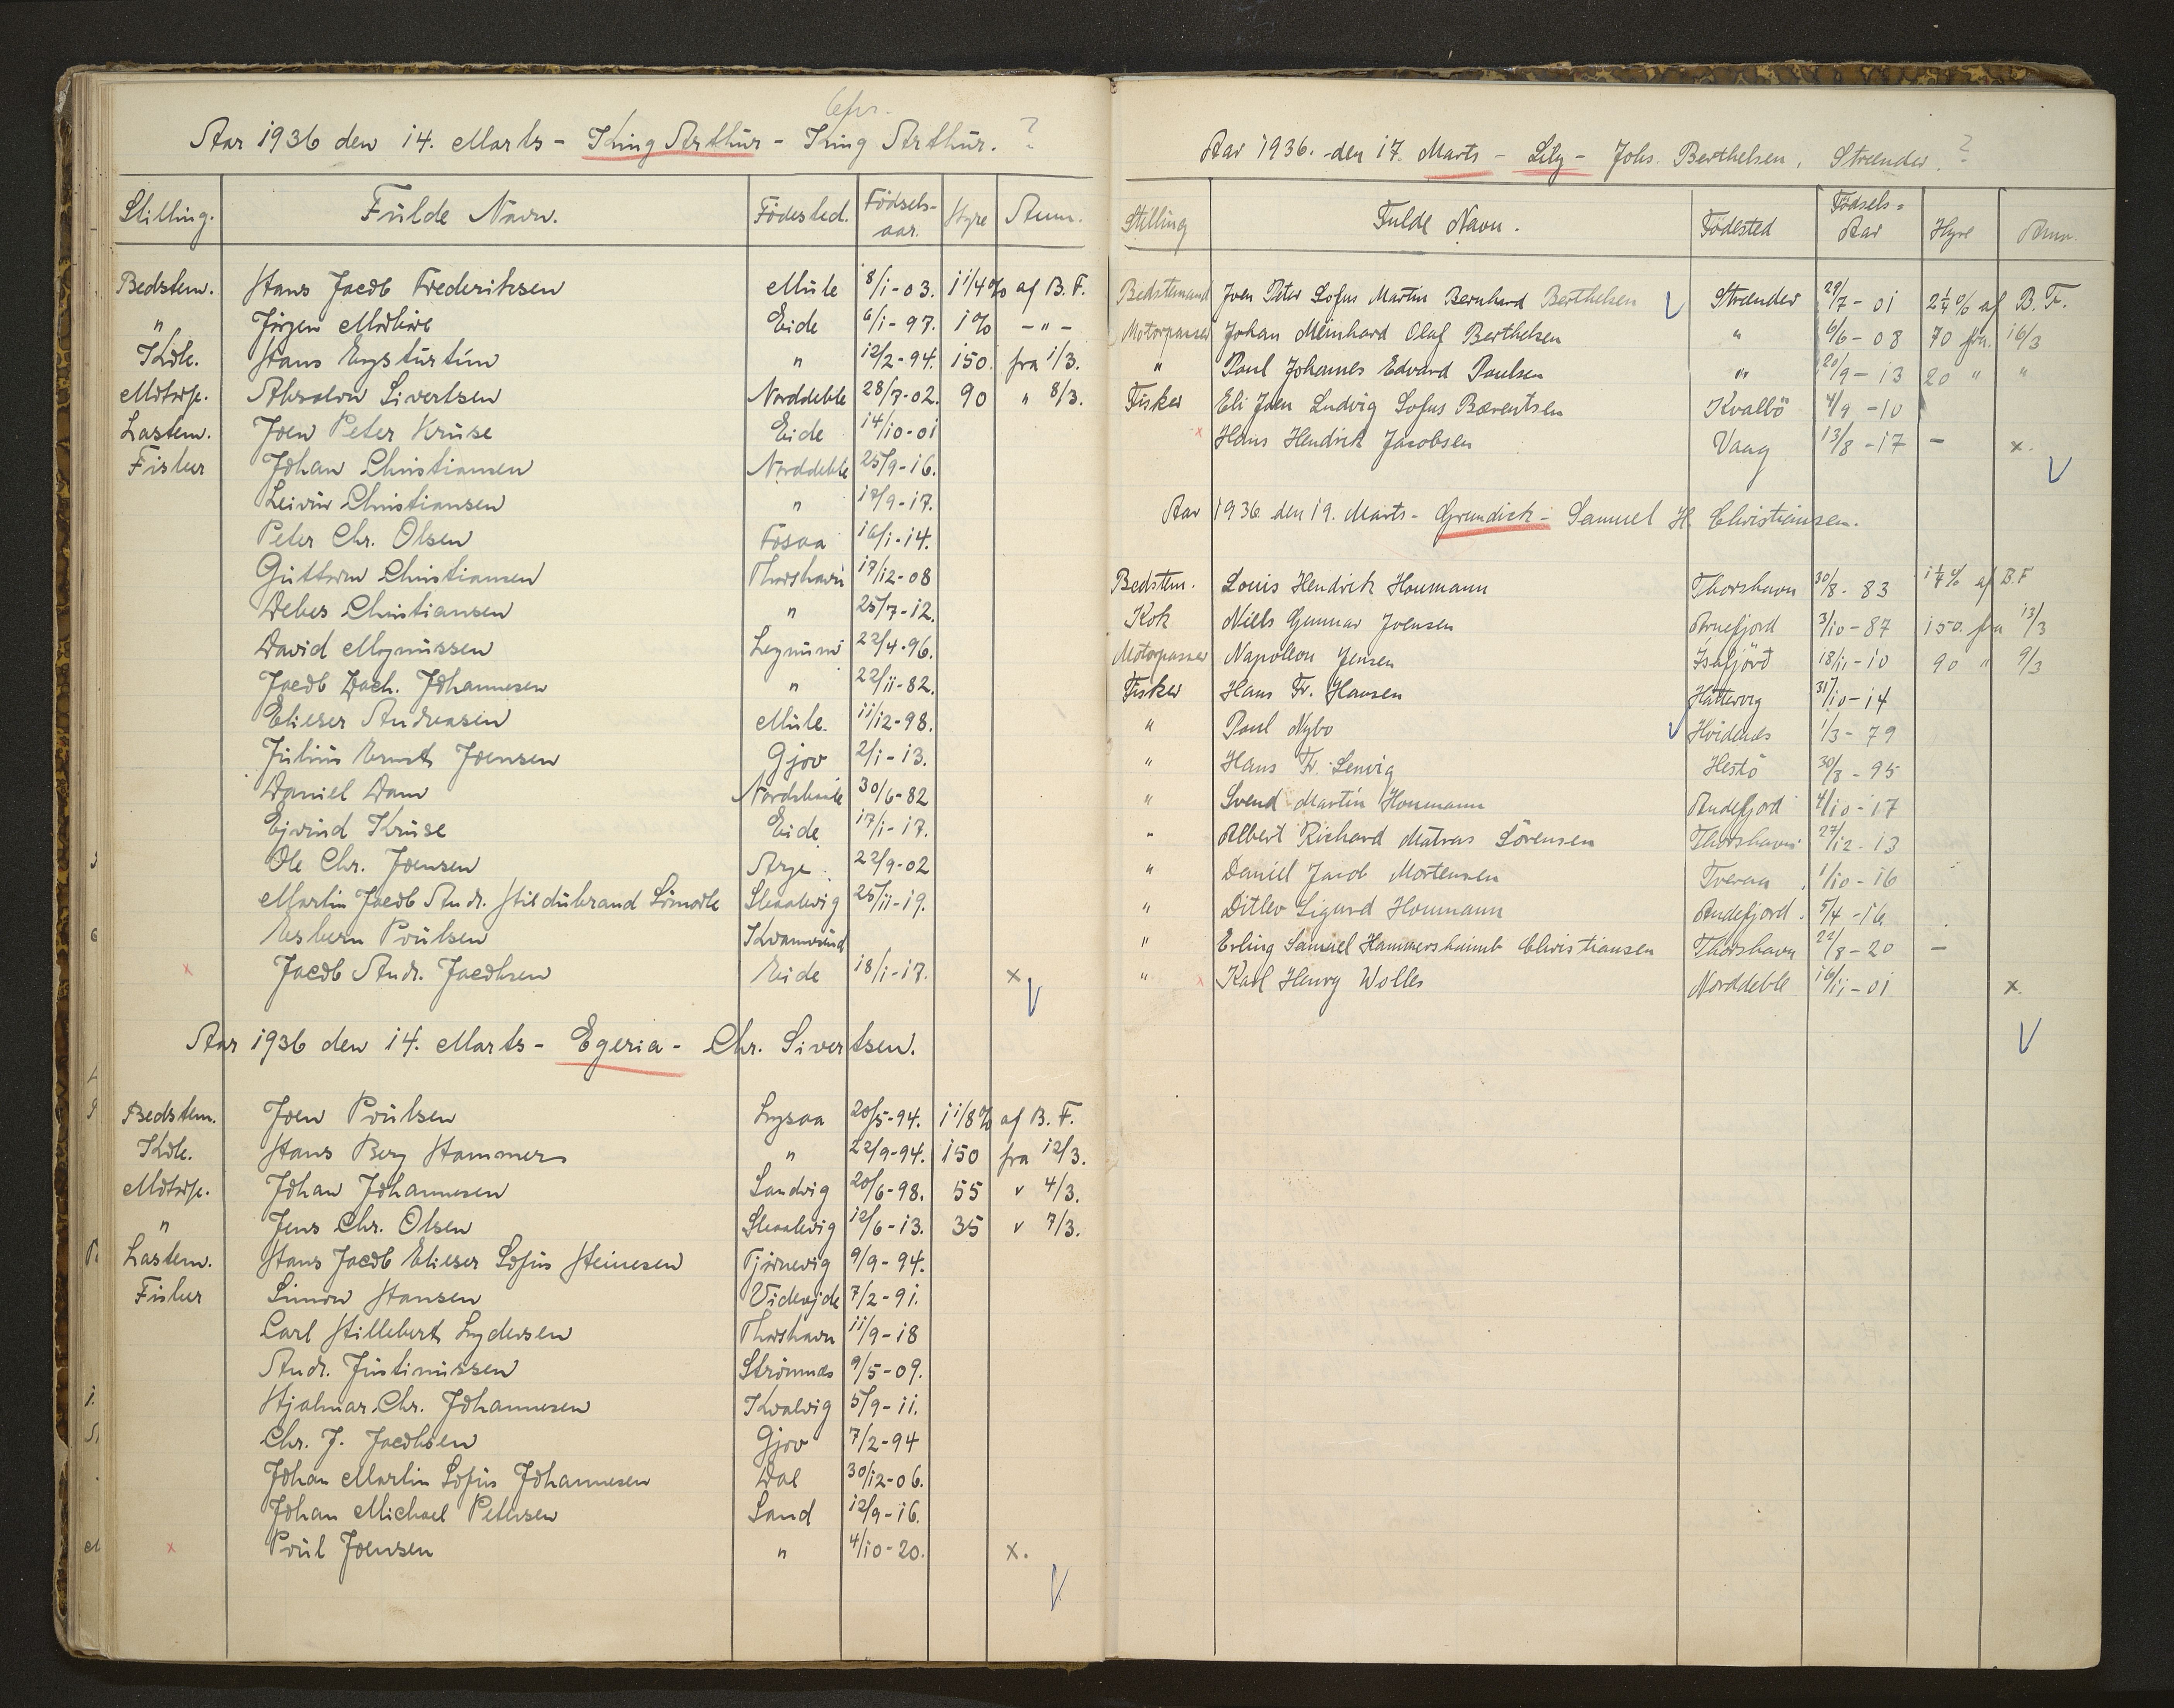 Aar 1936 den 14. Marts - King Arthur - King Arthur. ?
Stilling. Fulde Navn. Födested. Födsels-aar. Hyre Anm.
Bedstem. Hans Jacob Frederiksen Mule 8/1-03. 1 1/4 % af B. F.
" Jörgen Eide 6/1-97. 1% - " -
Kok. Hans Eysturtún " 12/2-94. 150 fra 1/3.
Motorp. Absalon Sivertsen Norddeble 28/7-02. 90 " 8/3.
Lastem. Joen Peter Kruse Eide 14/10-01
Fisker Johan Christiansen Norddeble 25/9-16.
Leivur Christiansen " 17/9-17.
Peter Chr. Olsen Fosaa 16/1-14.
Guttorm Christiansen Thorshavn 17/12-08
Debes Christiansen " 25/7-12.
David Magnussen 22/4-96.
Jacob Zach. Johannesen " 22/11-82.
Elieser Andreasen Mule. 11/12-98.
Julius Ernst Joensen Gjov 2/1-13.
Daniel Dam 30/6-82
Ejvind Kruse Eide 17/1-17.
Ole Chr. Joensen Arge 22/9-02
Martin Jacob Andr. Hildubrand Skaalevig 25/11-19.
Esbern Poulsen
x Jacob Andr. Jacobsen Eide 18/1-17. x
Aar 1936 den 14. Marts - Egeria - Chr. Sivertsen.
Bedstem. Joen Poulsen Lysaa 20/5-94. 1 1/8 % af B. F.
Kok. Hans Berg Hammer " 22/9-94. 150 fra 12/3.
Motorp. Johan Johannesen Sandvig 20/6-98. 55 " 4/3.
" Jens Chr. Olsen Skaalevig 12/6-13. 35 " 7/3.
Lastem. Hans Jacob Elieser Sofus Heinesen Tjörnevig 9/9-94.
Fisker Simon Hansen Videjde 7/2-91.
Carl Hillebert Lydersen Thorshavn 11/9-18
Andr. Justinussen Strömnæs 9/5-09.
Hjalmar Chr. Johannesen Kvalvig 5/9-11.
Chr. J. Jacobsen Gjov 7/2-94
Johan Martin Sofus Johannesen Dal 30/12-06.
Johan Michael Petersen Sand 12/9-16.
x Poul Joensen " 4/10-20. x.
Aar 1936. den 17. Marts - Lily - Johs. Berthelsen, Strænder. ?
Stilling Fulde Navn. Födested Födsels-Aar Hyre Anm.
Bedstemand Joen Peter Sofus Martin Bernhard Berthelsen Strænder 29/7-01 2 1/4 % af B. F.
Motorpasser Johan Meinhard Olaf Berthelsen " 6/6-08 70 fra 16/3
" Poul Johannes Edvard Poulsen " 20/9-13 20 " "
Fisker Eli Joen Ludvig Sofus Bærentsen Kvalbö 4/9-10
x Hans Hendrik Jacobsen Vaag 13/8-17 - x.
Aar 1936 den 19. Marts - Grundick - Samuel H. Christiansen.
Bedstem. Louis Hendrik Houmann Thorshavn 30/8-83 1 1/4 % af B. F
Kok Niels Gunnar Joensen Arnefjord 3/10-87 150. fra 13/3
Motorpasser Napoleon Jensen Isafjörd 18/11-10 90 " 9/3
Fisker Hans Fr. Hansen Hattervig 31/10-14
" Poul Nybo Hvidenæs 1/3-79
" Hans Fr. Lenvig Hestö 30/8-95
" Svend Martin Houmann Andefjord 4/10-17
" Albert Richard Matras Sörensen Thorshavn 27/12-13
" Daniel Jacob Mortensen Tveraa 1/10-16
" Ditlev Sigurd Houmann Andefjord. 5/4-16
" Erling Samuel Hammershaimb Christiansen Thorshavn 22/8-20 -
" x Karl Henry Wolles Norddeble 16/11-01 x.